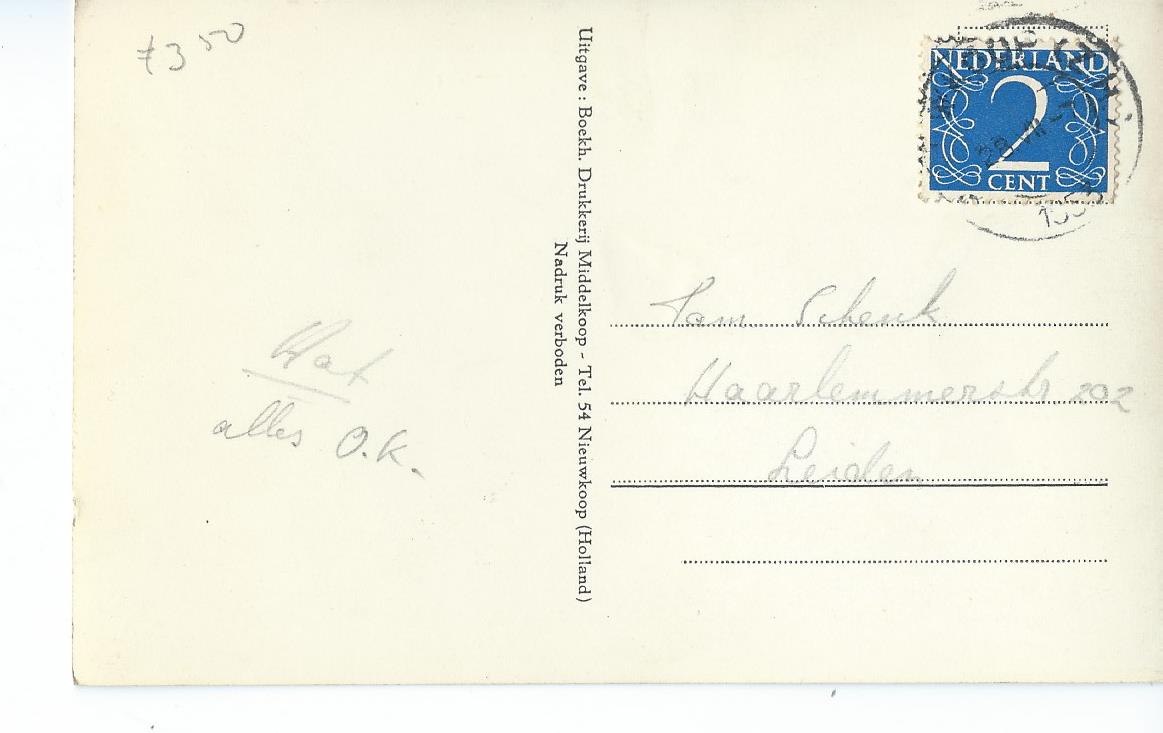 ƒ3 50
Wat
alles O.K.
Uitgave : Boekh. Drukkerij Middelkoop - Tel. 54 Nieuwkoop (Holland)
Nadruk verboden
NEDERLAND
2
CENT
28 VII
1953
Fam Schenk
Haarlemmerstr 202
Leiden